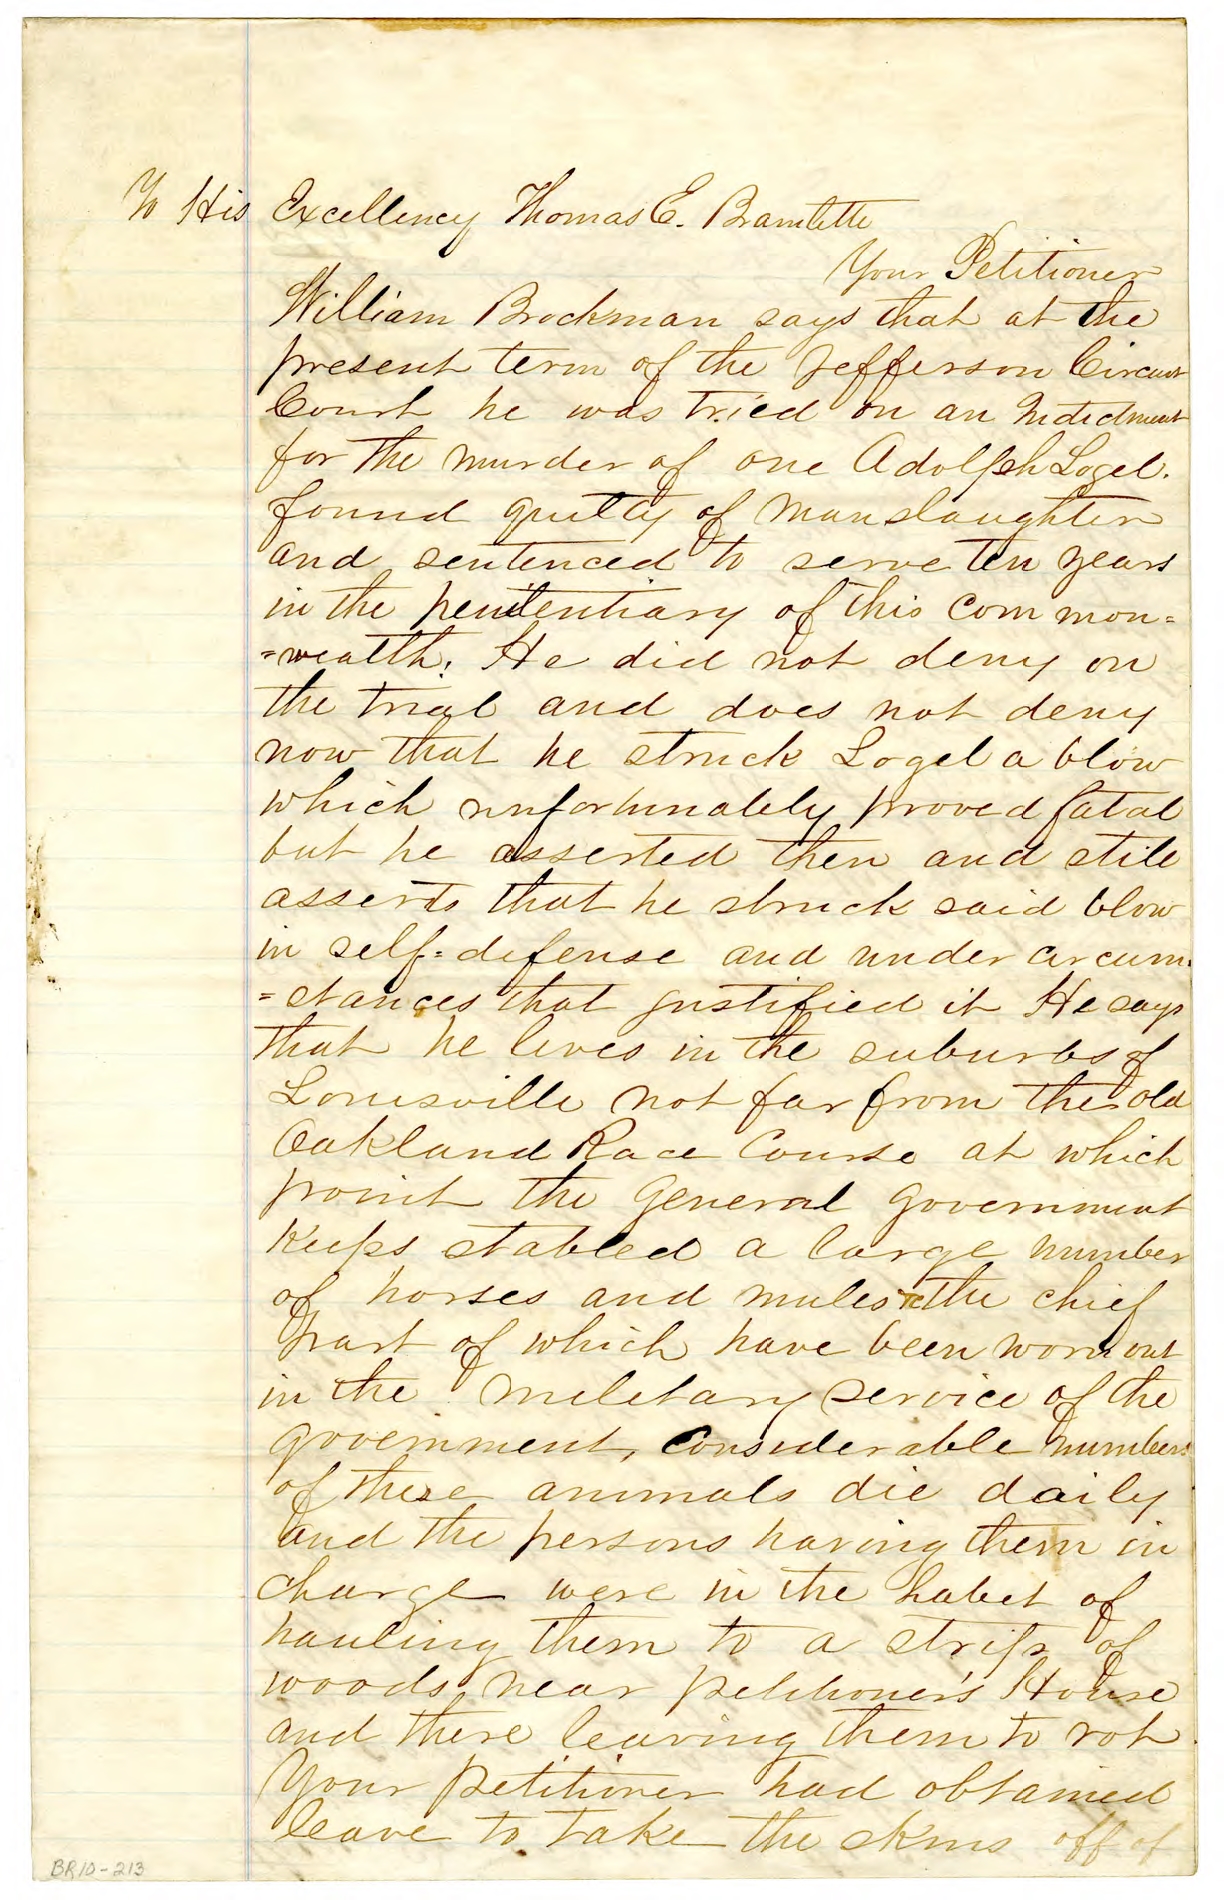 To His Excellency Thomas E. Bramlette
Your Petitioner
William Brockman says that at the
present term of the Jefferson Circuit
Court he was tried on an Indictment
for the murder of one Adolph Logel.
found guilty of Manslaughter
and sentenced to serve ten years
in the penitentiary of this common=
=wealth. He did not deny on
the trial and does not deny
now that he struck Logel a blow
which unfortunately proved fatal
but he asserted then and still
asserts that he struck said blow
in self=defense and under circum=
=stances that justified it He says
that he lives in the suburbs of
Louisville not far from the old
Oakland Race Course at which
point the General Government
keeps stabled a large number
of horses and mules the chief
part of which have been worn out
in the military service of the
government, considerable numbers
of these animals die daily
and the persons having them in
charge were in the habit of
hauling them to a strip of
woods near petitioner's House
and there leaving them to rot
Your petitioner had obtained
leave to take the skins off of
BR10-213